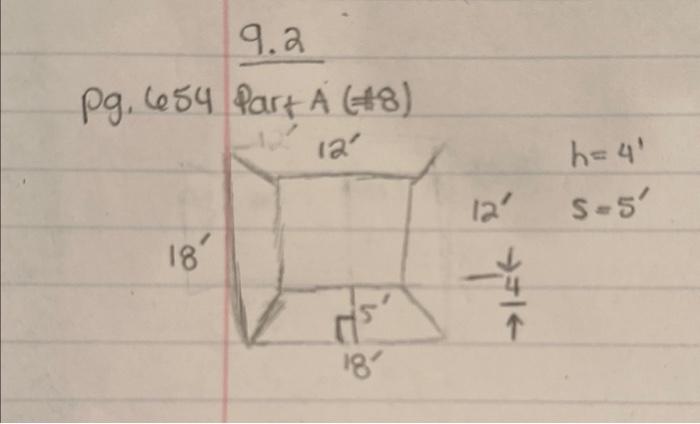 9.2
pg. 654 Part A (#8)
12'
12'
h = 4'
12'
s = 5'
18'
4
5'
18'